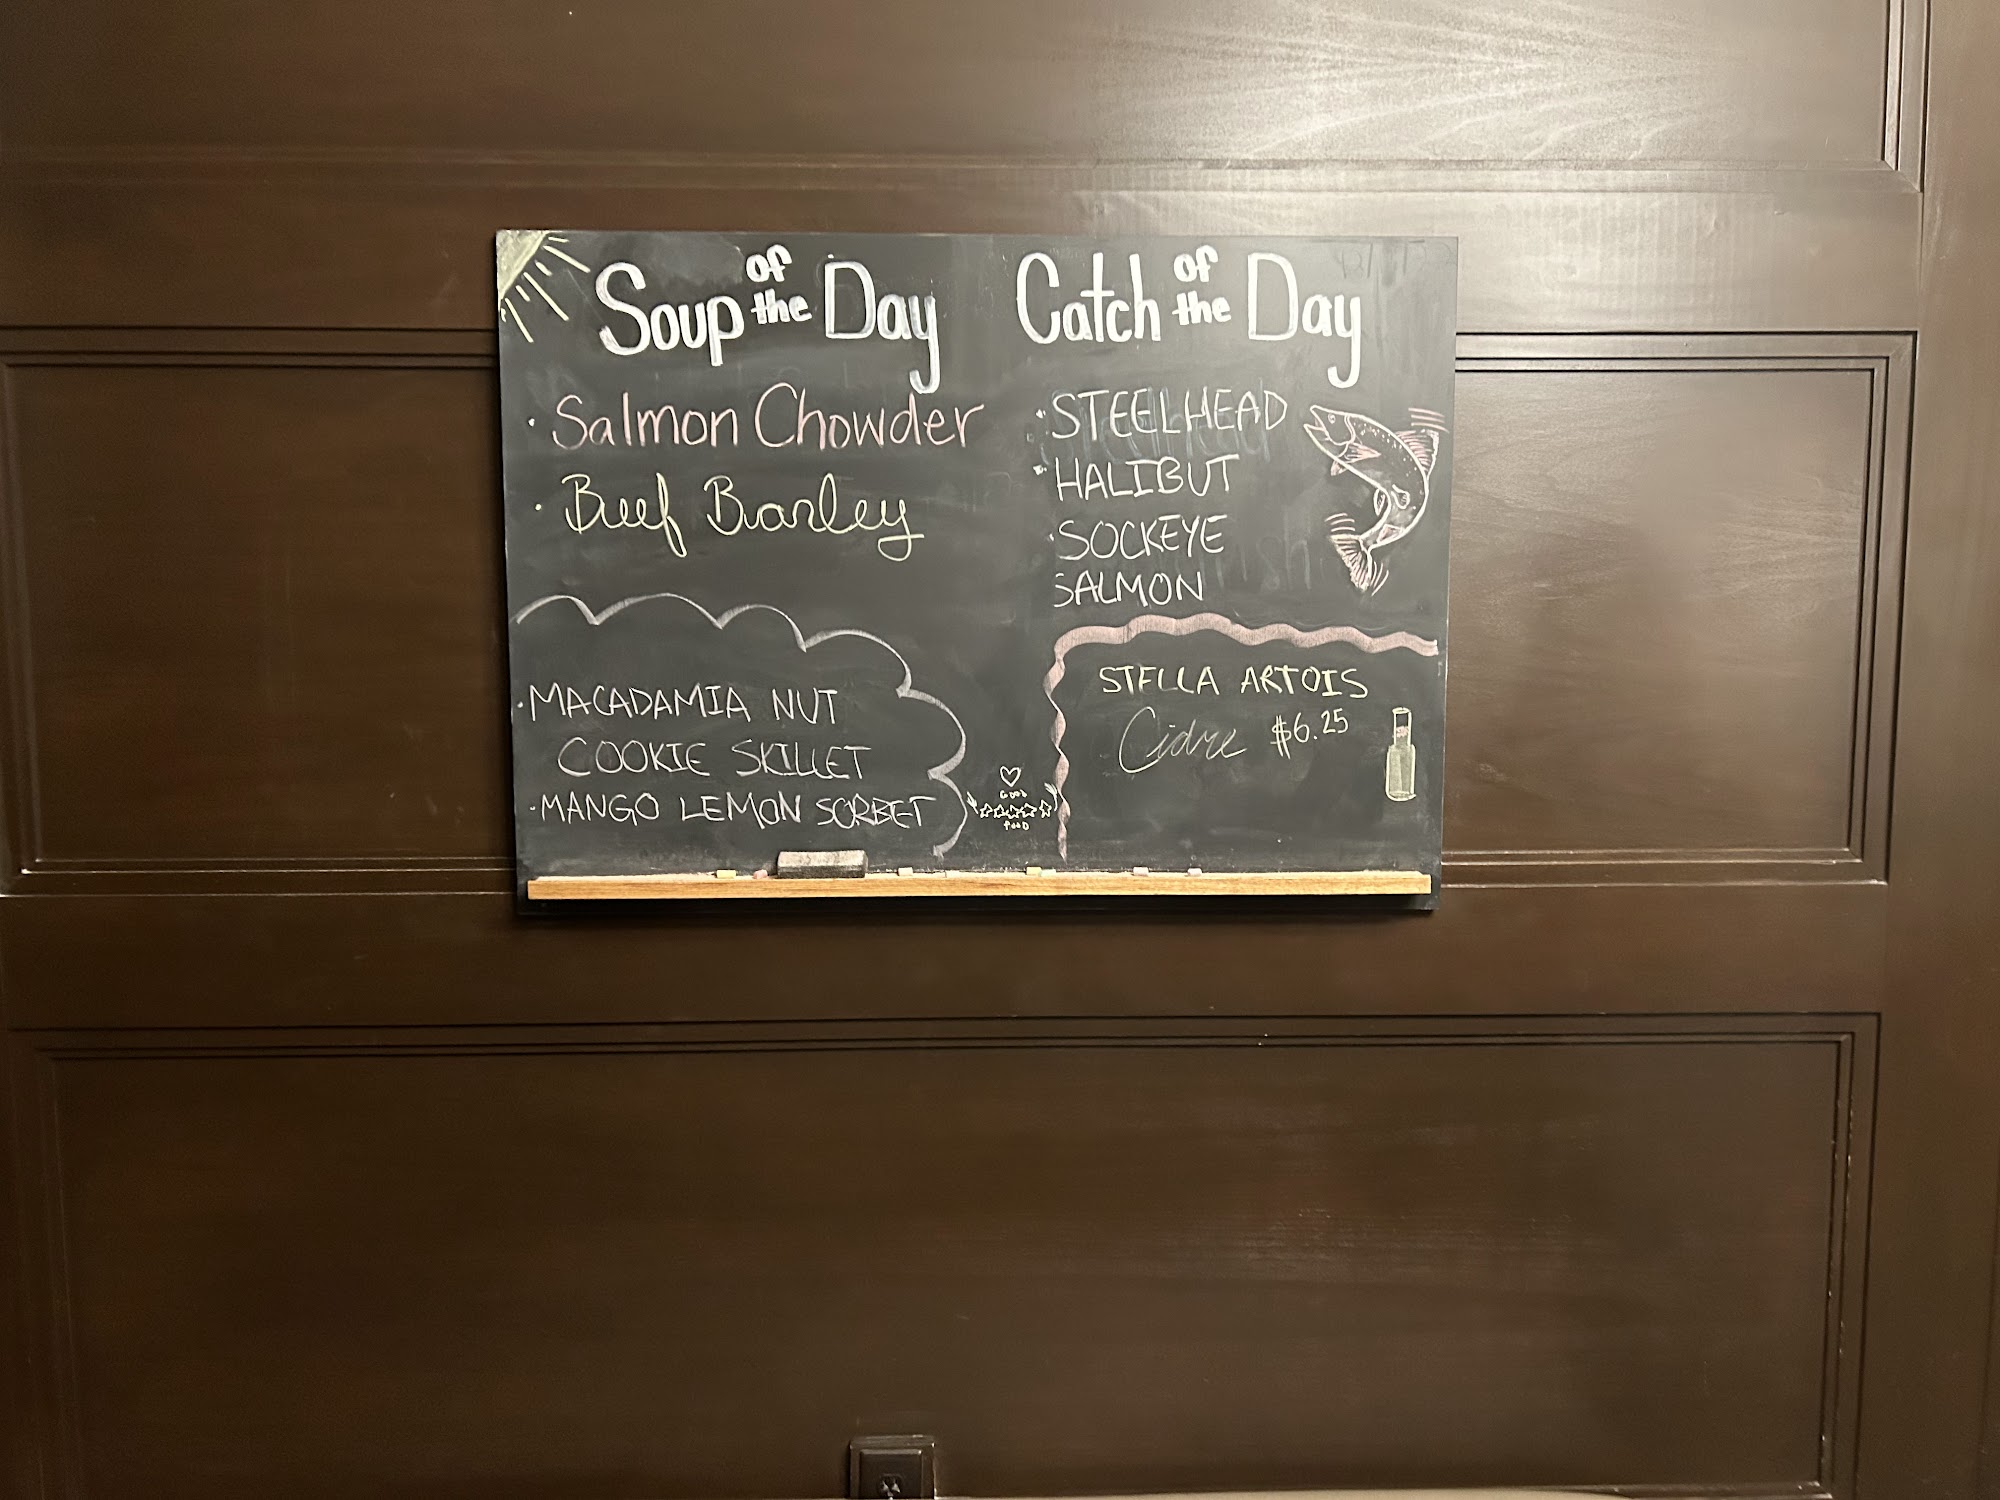 Soup of the Day
· Salmon Chowder
· Beef Barley
· MACADAMIA NUT
COOKIE SKILLET
· MANGO LEMON SORBET
GOOD
FOOD
Catch of the Day
· STEELHEAD
· HALIBUT
· SOCKEYE
SALMON
STELLA ARTOIS
Cidre $6.25